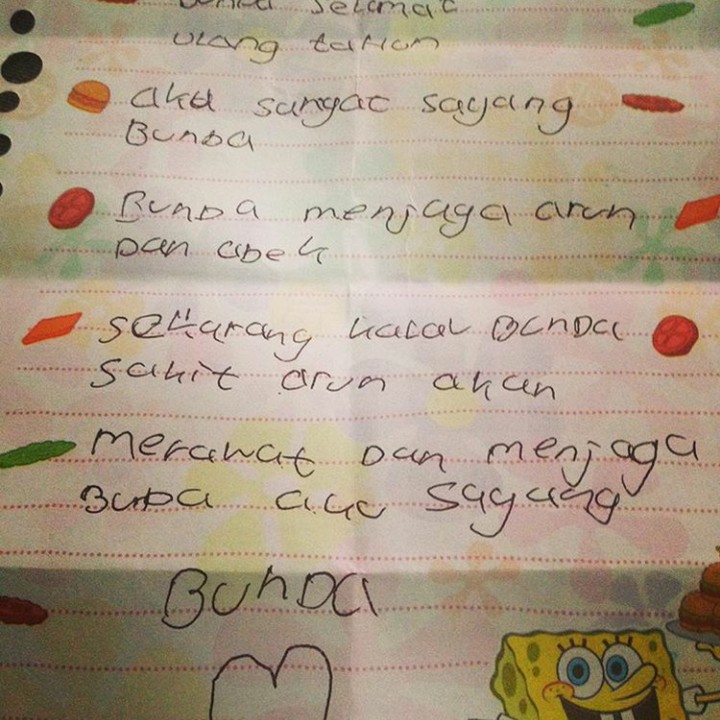 Bunda Selamat
ulang tahun
aku sangat sayang
Bunda
Bunda menjaga arun
Dan abek
sekarang kalau Bunda
sakit arun akan
merawat Dan menjaga
Bunba aku Sayang
Bunda